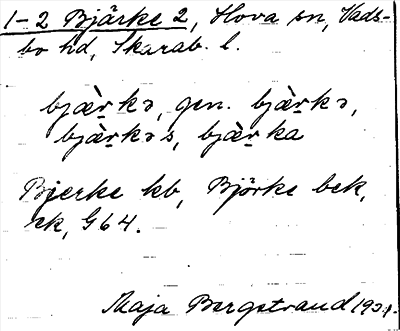 1-2 Bjärke 2, Hova sn, Vads-
bo hd, Skarab. l.
bjæ̀r̥kə, gen. bjæ̀r̥kə,
bjæ̀r̥kəs, bjæ̀r̥ka
Bjerke kb, Björke bek,
ek, G64.
Maja Bergstrand